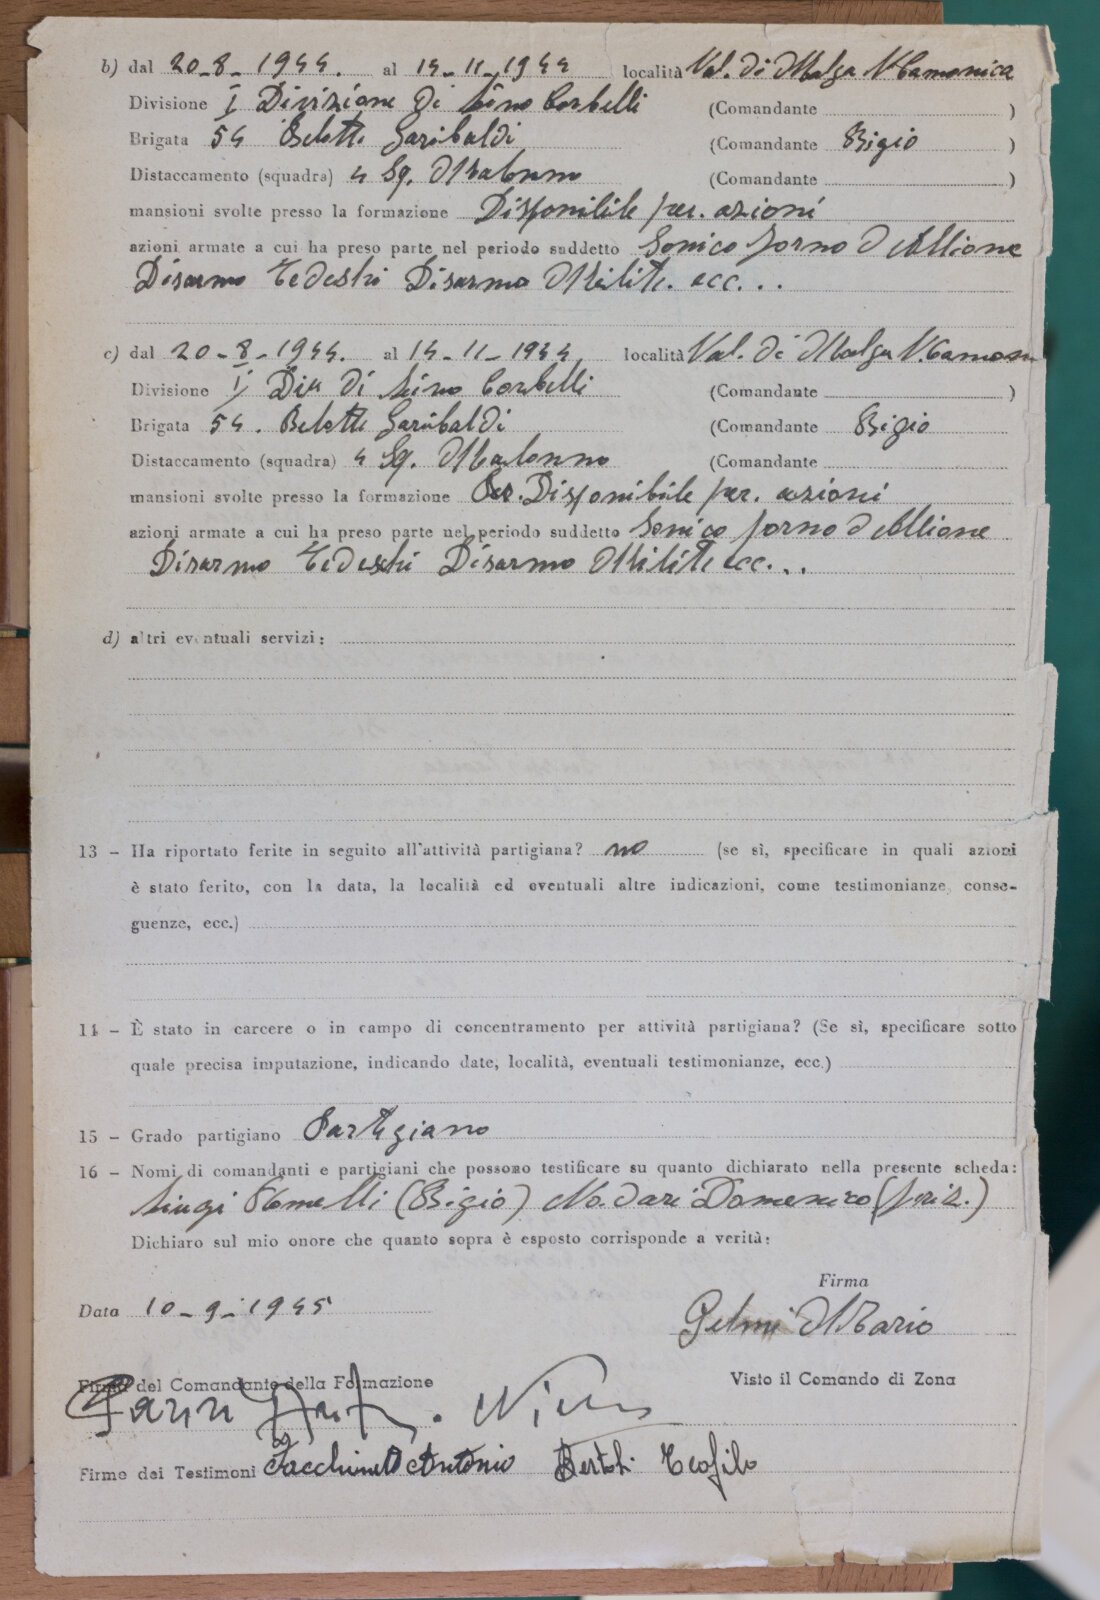 b) dal 20-8-1944. al 14-11-1944 località Val. di Malga V Camonica
Divisione I Divizione di Lino Corbelli (Comandante )
Brigata 54 Belotti Garibaldi (Comandante Bigio )
Distaccamento (squadra) 4 Sq. Malonno (Comandante )
mansioni svolte presso la formazione Disponibile per. azioni
azioni armate a cui ha preso parte nel periodo suddetto Sonico Forno d Allione
Disarmo Tedeshi Disarmo Militi. ecc...
c) dal 20-8-1944. al 14-11-1944 località Val. di Malga V. Camon
Divisione I Div di Lino Corbelli (Comandante )
Brigata 54. Belotti Garibaldi (Comandante Bigio
Distaccamento (squadra) 4 Sq. Malonno (Comandante
mansioni svolte presso la formazione Disponibile per. azioni
azioni armate a cui ha preso parte nel periodo suddetto Sonico forno d Allione
Disarmo Tedeschi Disarmo Militi ecc...
d) altri eventuali servizi:
13 – Ha riportato ferite in seguito all'attività partigiana? no (se sì, specificare in quali azioni
è stato ferito, con la data, la località ed eventuali altre indicazioni, come testimonianze, conse-
guenze, ecc.)
14 – È stato in carcere o in campo di concentramento per attività partigiana? (Se sì, specificare sotto
quale precisa imputazione, indicando date, località, eventuali testimonianze, ecc.)
15 – Grado partigiano Partigiano
16 – Nomi di comandanti e partigiani che possono testificare su quanto dichiarato nella presente scheda:
Luigi Romelli (Bigio) Nodari Domenico
Dichiaro sul mio onore che quanto sopra è esposto corrisponde a verità:
Firma
Data 10-9-1945 Gelmi Mario
Firma del Comandante della Formazione Visto il Comando di Zona
Nino
Firme dei Testimoni Facchinetti Antonio Bertoli Teofilo